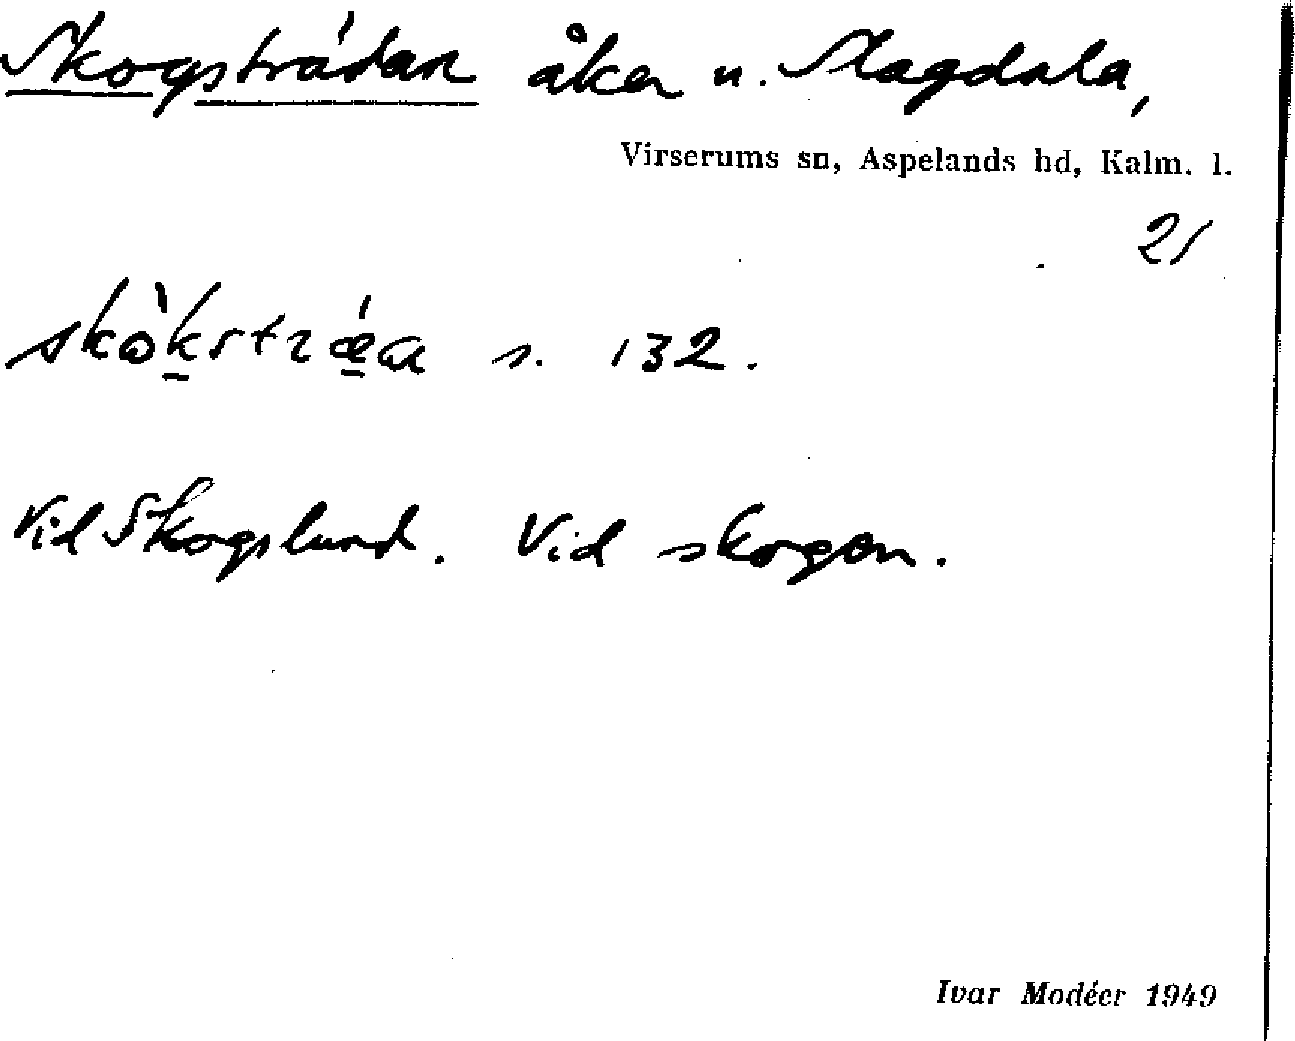 Skogsträdan åker u. Slagdala,
Virserums sn, Aspelands hd, Kalm. l.
21
skòkstrǽa s. 132.
Vid Skogslund. Vid skogen.
Ivar Modéer 1949